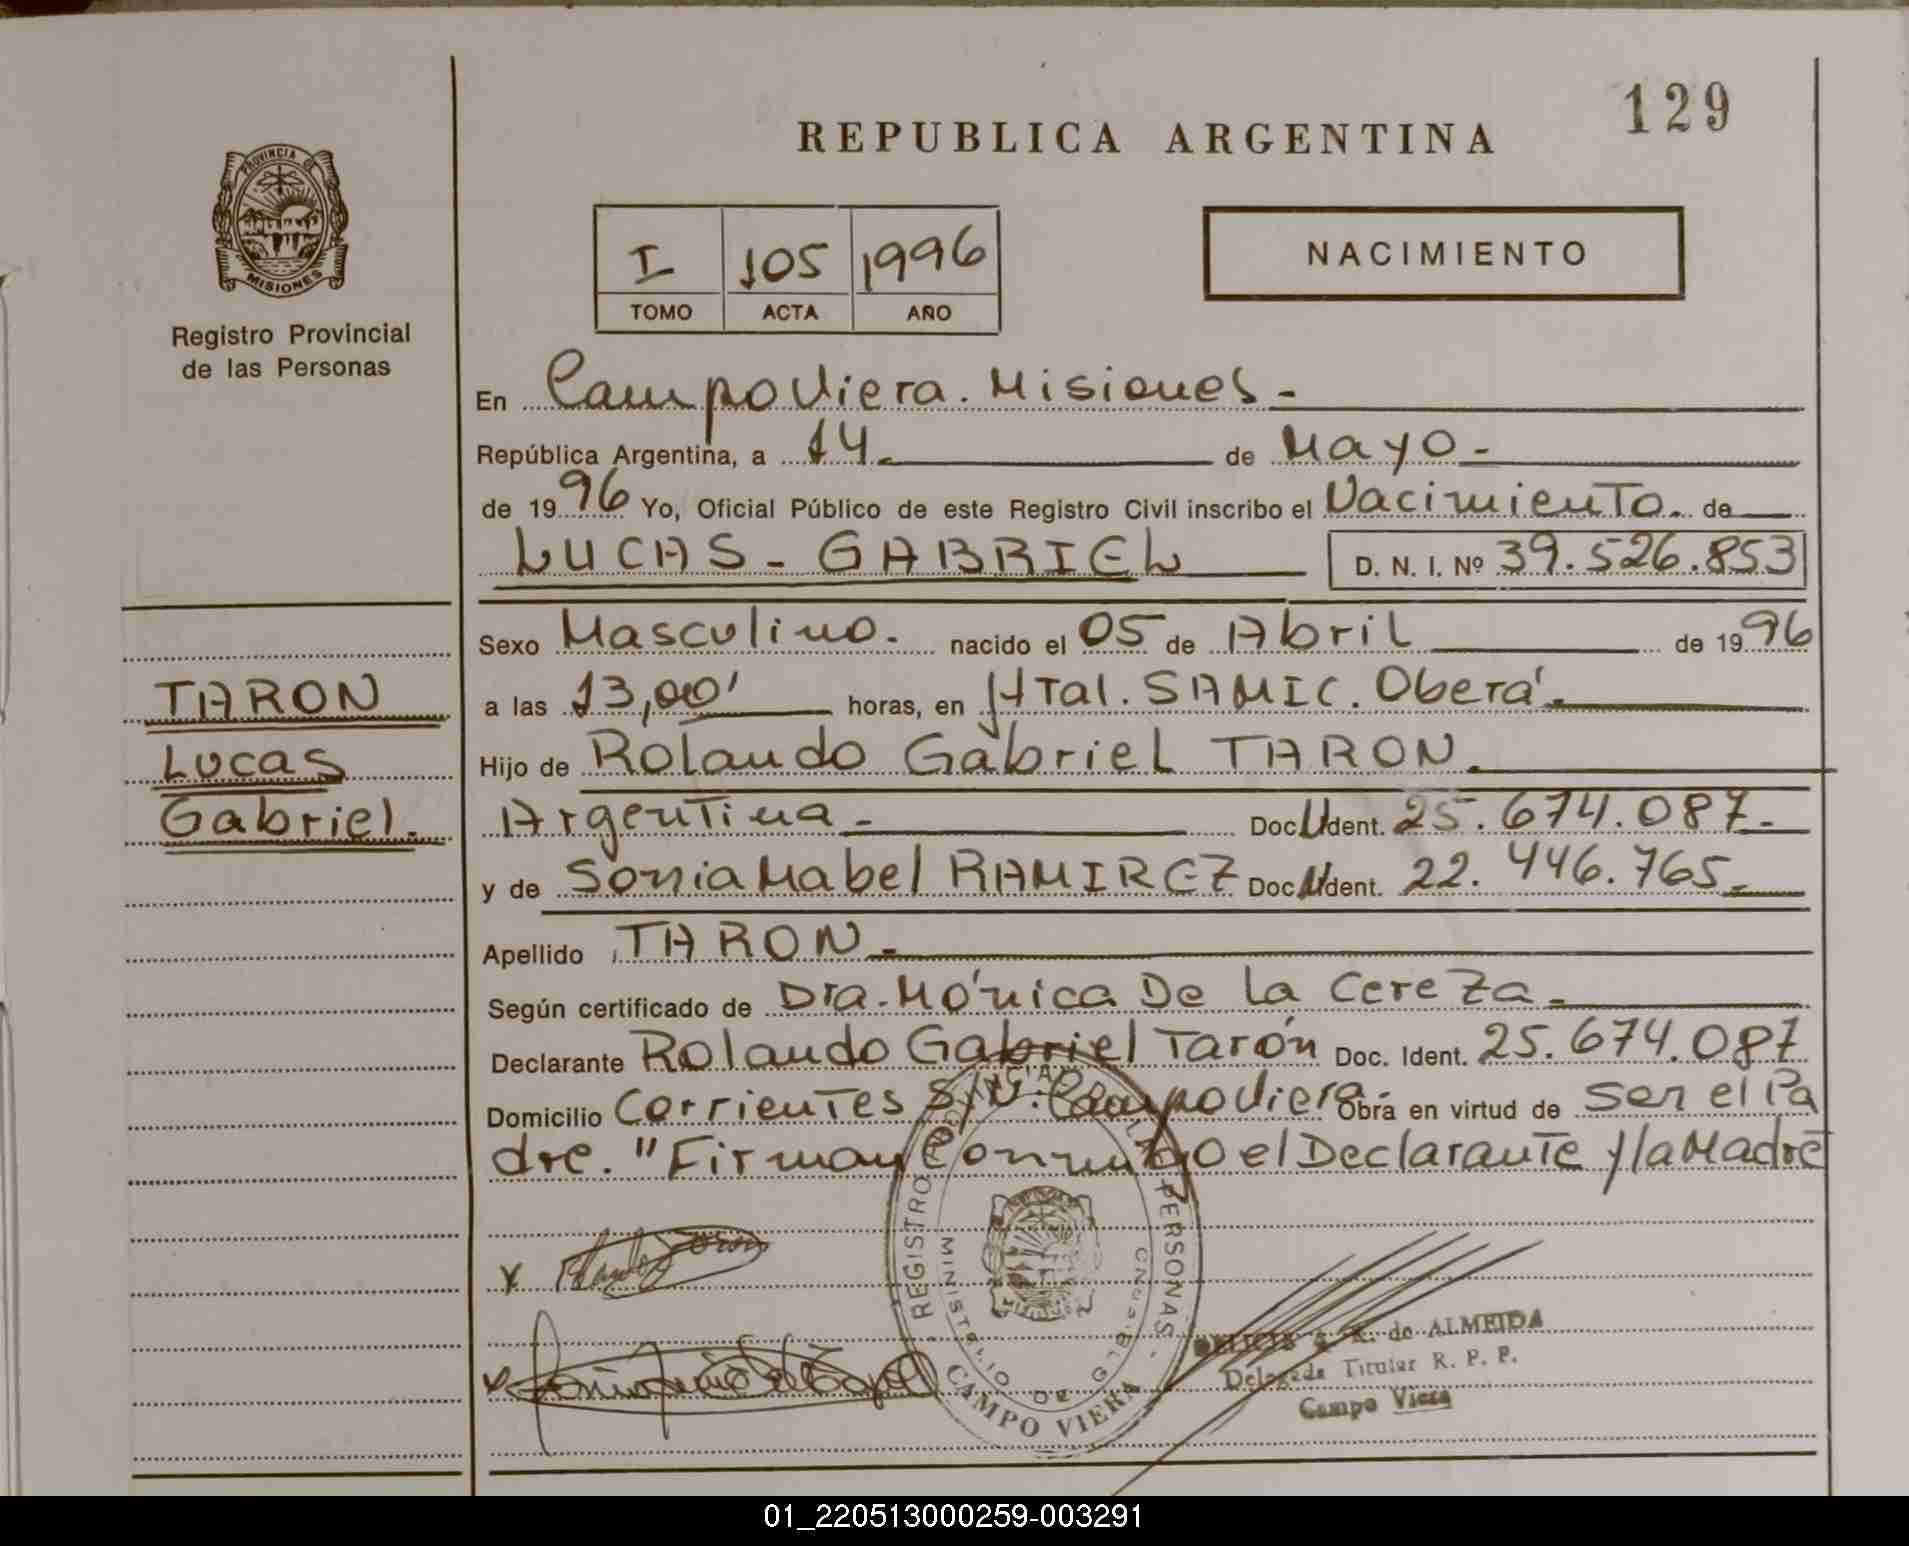 129
REPUBLICA ARGENTINA
PROVINCIA DE
MISIONES
Registro Provincial
de las Personas
I 105 1996
TOMO ACTA AÑO
NACIMIENTO
En Campo Viera. Misiones -
República Argentina, a 14 de Mayo -
de 1996 Yo, Oficial Público de este Registro Civil inscribo el Nacimiento. de
LUCAS - GABRIEL D. N. I. Nº 39.526.853
Sexo Masculino. nacido el 05 de Abril de 1996
TARON
a las 13,00' horas, en HTal. SAMIC. Oberá.
Lucas
Hijo de Rolando Gabriel TARON.
Gabriel.
Argentina - Doc. U Ident. 25.674.087.-
y de Sonia Mabel RAMIREZ Doc. U Ident. 22.446.765.-
Apellido TARON -
Según certificado de Dra. Mónica De la Cereza -
Declarante Rolando Gabriel Tarón Doc. Ident. 25.674.087
Domicilio Corrientes S/N. Campo Viera Obra en virtud de Ser el Pa
dre. "Firman Conmigo el Declarante y la Madre
REGISTRO PERSONAS
MINISTERIO DE GOB
CAMPO VIERA
de ALMEIDA
Delegada Titular R. P. P.
Campo Viera
01_220513000259-003291